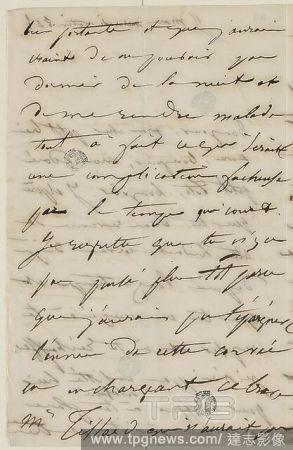 bien portante et que j'aurais
crainte de ne pouvoir pas
dormir de la nuit et
de me rendre malade
tout à fait ce qui serait
une complication fâcheuse
par le temps qui court.
Je regrette que tu n'ayes
pas parlé plus tôt parce
que j'aurais pu t'épargner
l'ennui de cette corvée
en chargeant ce brave
Mr qui n'aurait pas
www.tpgnews.com 達志影像